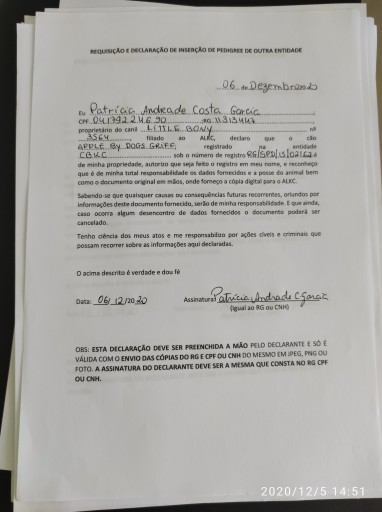 REQUISIÇÃO E DECLARAÇÃO DE INSERÇÃO DE PEDIGREE DE OUTRA ENTIDADE
06 de Dezembro 20
Eu Patrícia Andreade Costa Garcia
CPF 04179224690 RG 11313447
proprietário do canil LITTLE BONY nº
3564 filiado ao ALKC, declaro que o cão
APPLE By DOGS GRIFF, registrado na entidade
CBKC sob o número de registro RG/SPD/15/02162
de minha propriedade, autorizo que seja feito o registro em meu nome, e reconheço
que é de minha total responsabilidade os dados fornecidos e a posse do animal bem
como o documento original em mãos, onde forneço a cópia digital para o ALKC.
Sabendo-se que quaisquer causas ou consequências futuras recorrentes, oriundos por
informações deste documento fornecido, serão de minha responsabilidade. E que ainda,
caso ocorra algum desencontro de dados fornecidos o documento poderá ser
cancelado.
Tenho ciência dos meus atos e me responsabilizo por ações cíveis e criminais que
possam recorrer sobre as informações aqui declaradas.
O acima descrito é verdade e dou fé
Data: 06/12/2020 Assinatura Patrícia Andrade C Garcia
(Igual ao RG ou CNH)
OBS: ESTA DECLARAÇÃO DEVE SER PREENCHIDA A MÃO PELO DECLARANTE E SÓ É
VÁLIDA COM O ENVIO DAS CÓPIAS DO RG E CPF OU CNH DO MESMO EM JPEG, PNG OU
FOTO. A ASSINATURA DO DECLARANTE DEVE SER A MESMA QUE CONSTA NO RG CPF
OU CNH.
2020/12/5 14:51